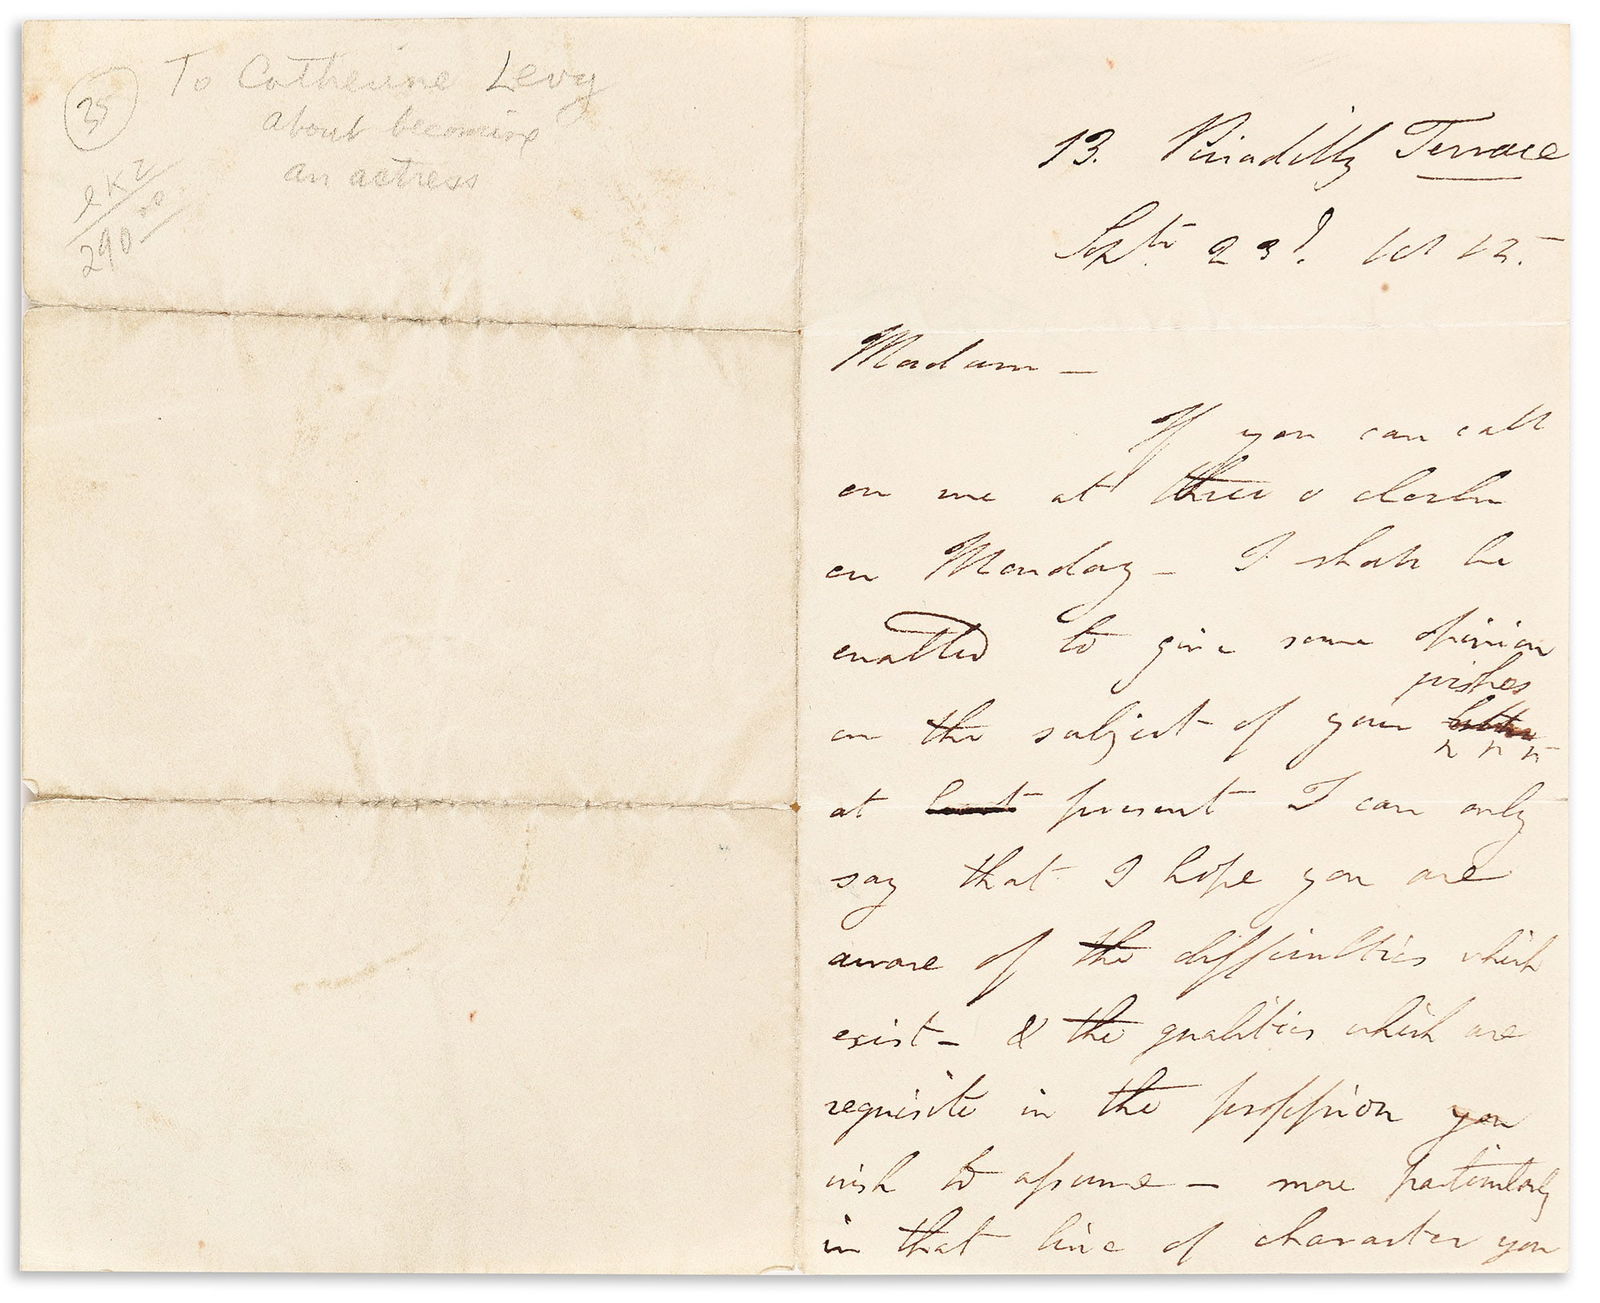 35
To Catherine Levy
about becoming
an actress
290
13. Piccadilly Terrace
Madam –
If you can call
on me at three o clock
on Monday – I shall be
enabled to give some opinion
wishes
on the subject of your
at present I can only
say that I hope you are
aware of the difficulties which
exist – & the qualities which are
requisite in the profession you
wish to assume – more particularly
in that line of character you